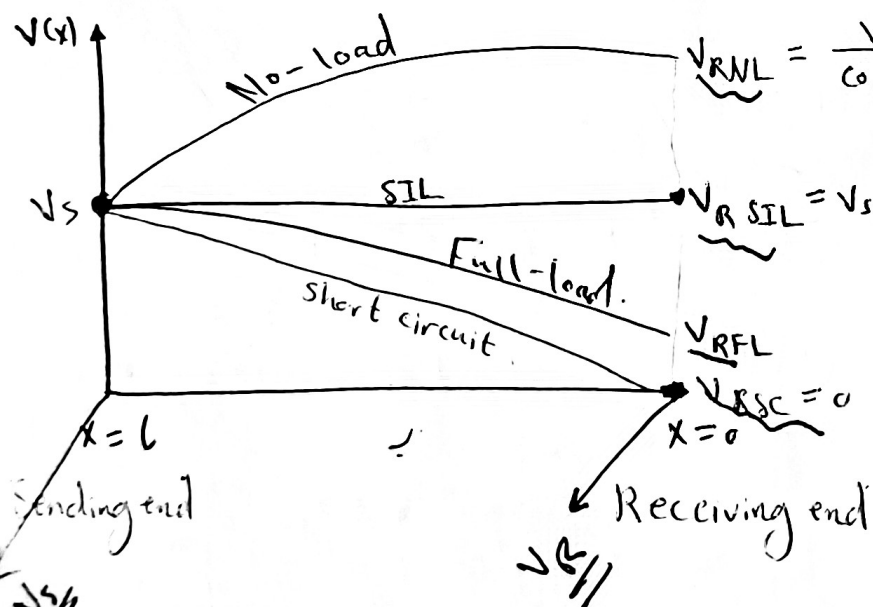 V(x)
No-load
V_RNL = V / co
V_S
SIL
V_R SIL = V_S
Full-load.
short circuit
V_RFL
V_RSC = 0
x = l
x = 0
Sending end
Receiving end
V_S
V_R